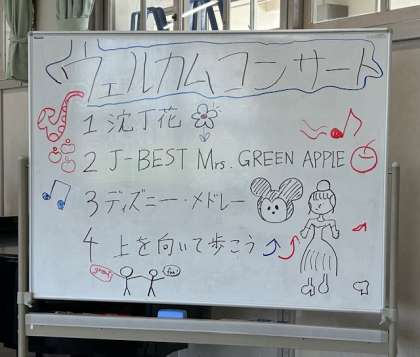 ウェルカムコンサート
1 沈丁花
2 J-BEST Mrs. GREEN APPLE
3 ディズニー・メドレー
4 上を向いて歩こう